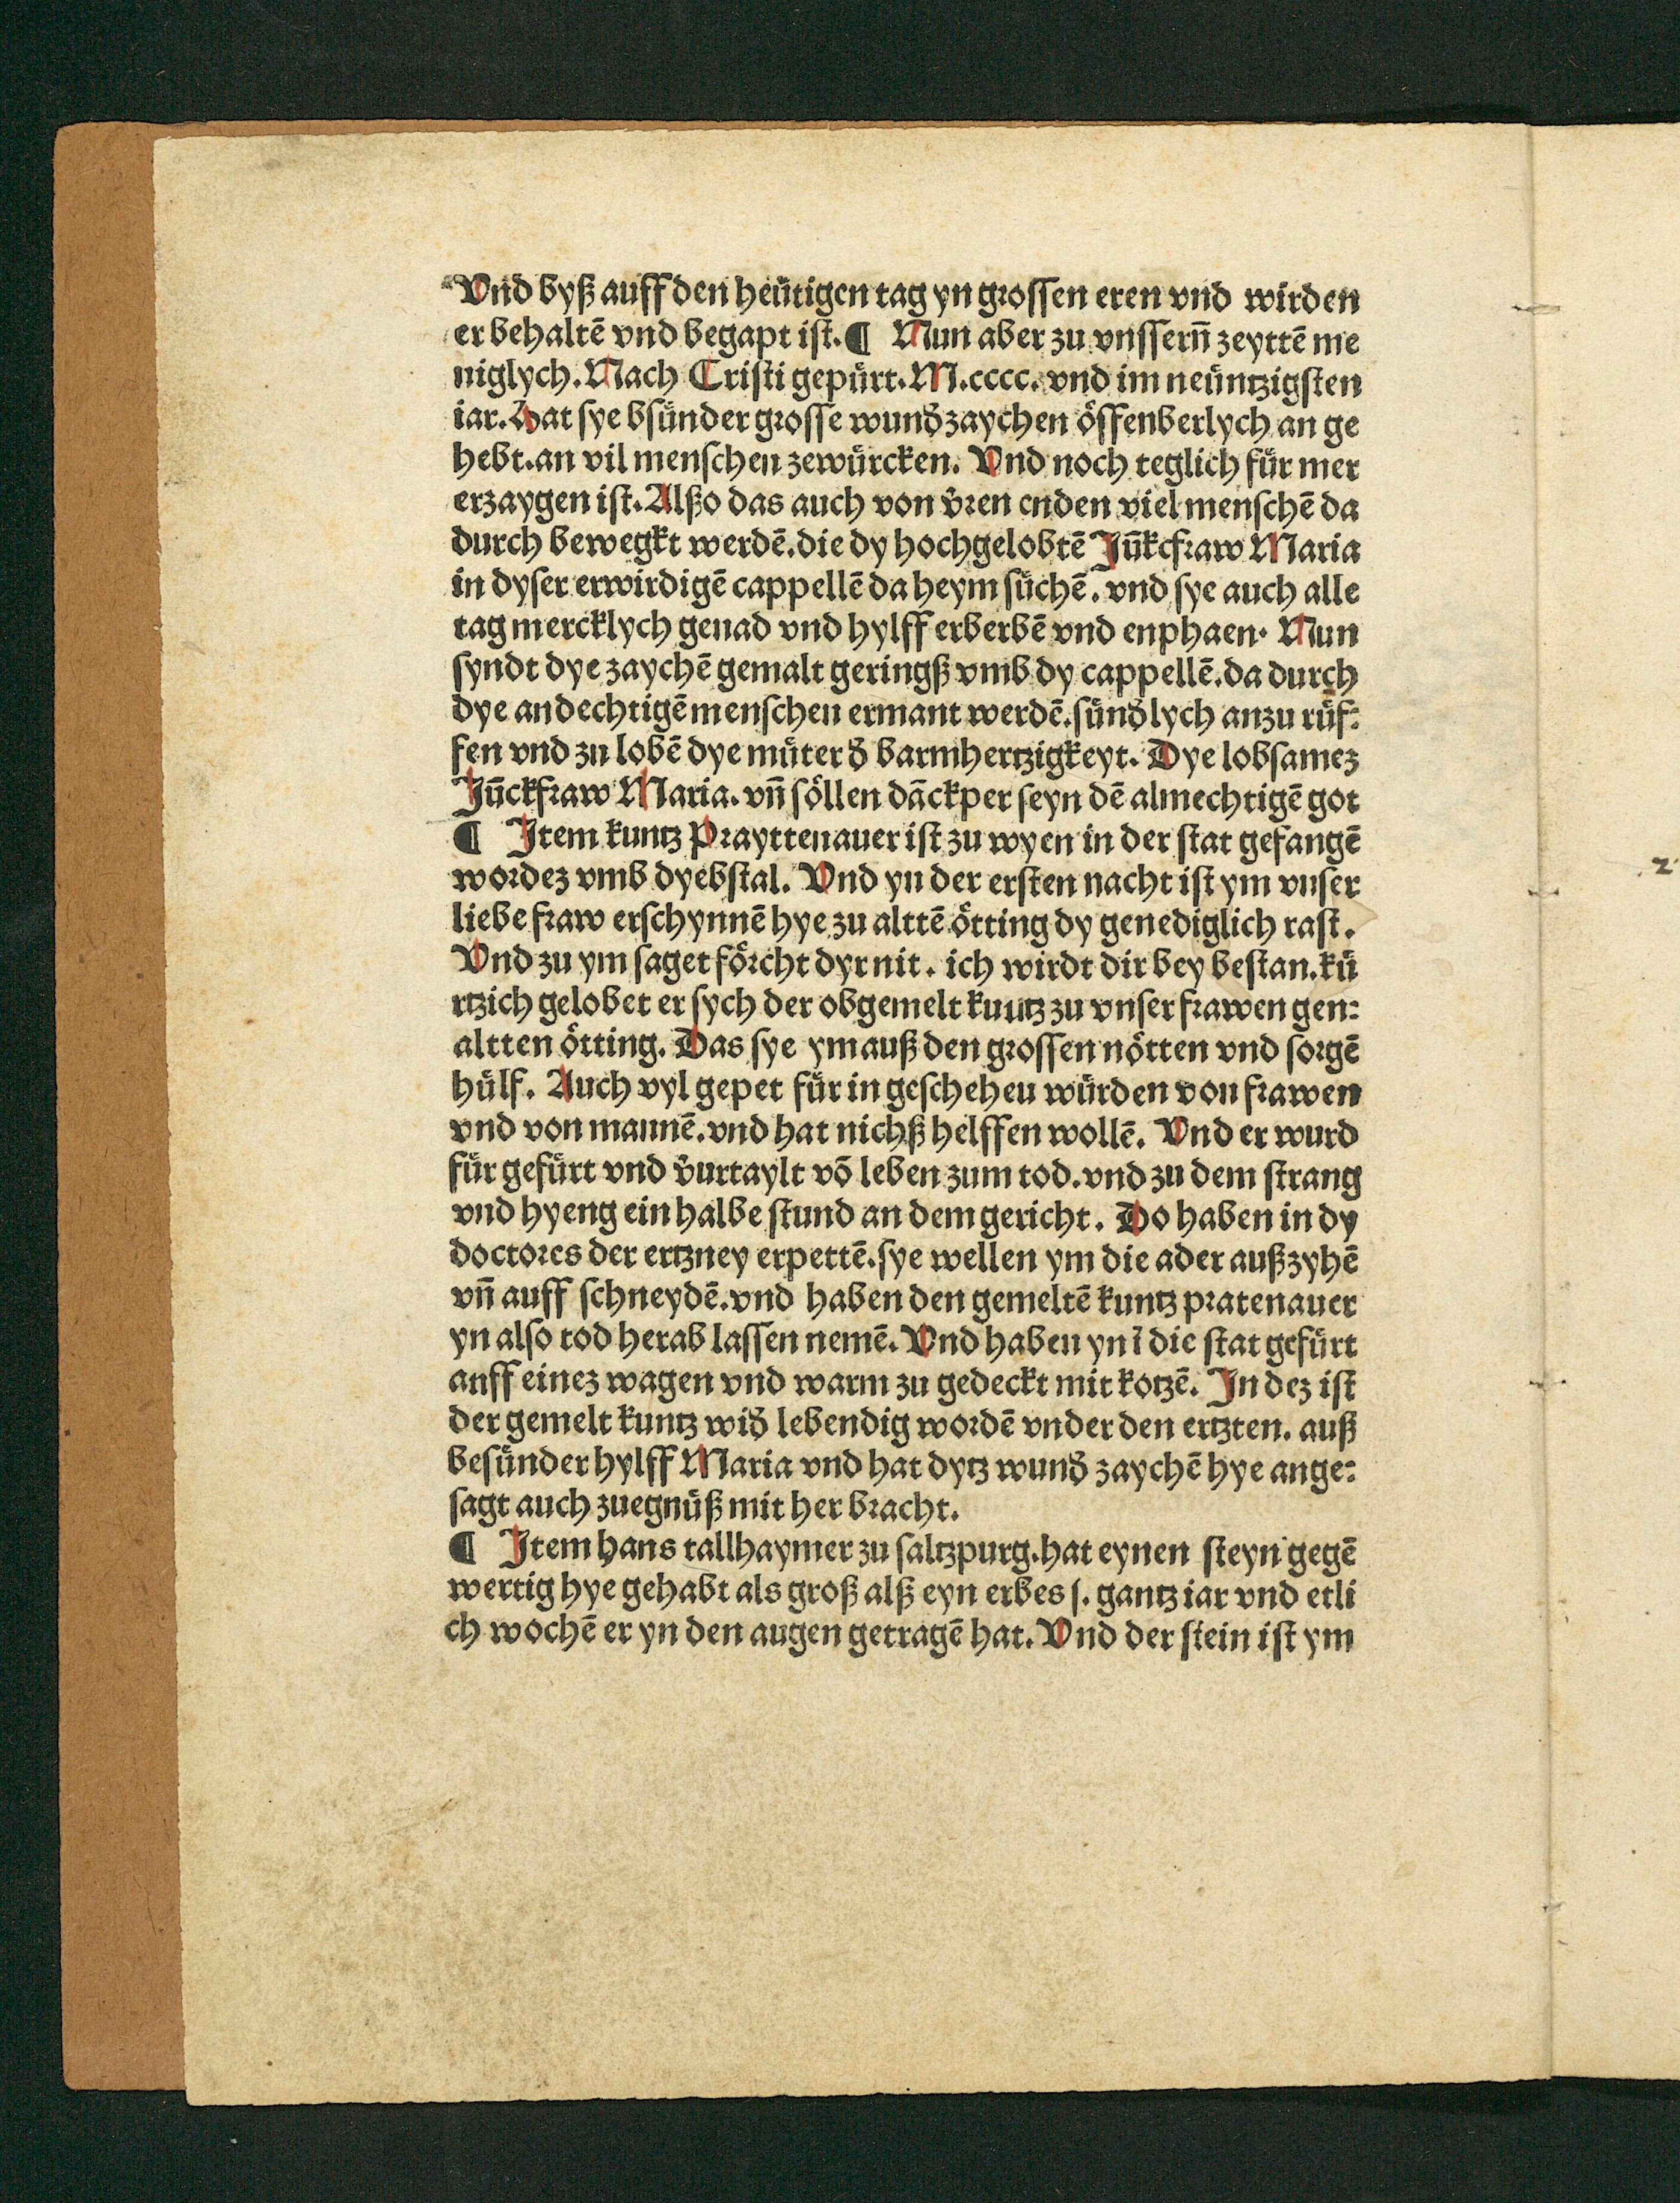 Vnd byß auff den heütigen tag yn grossen eren vnd wirden
er behaltē vnd begapt ist. ¶ Nun aber zu vnssern̄ zeyttē me
niglych. Nach Cristi gepürt. M.cccc. vnd im neüntzigsten
iar. Hat sye bsünder grosse wunđzaychen öffenberlych an ge
hebt. an vil menschen zewürcken. Vnd noch teglich für mer
erzaygen ist. Alßo das auch von v̄ren enden viel menschē da
durch bewegkt werdē. die dy hochgelobtē Jūkcfraw Maria
in dyser erwirdigē cappellē da heym süchē. vnd sye auch alle
tag mercklych genad vnd hylff erberbē vnd enphaen. Nun
syndt dye zaychē gemalt geringß vmb dy cappellē. da durch
dye andechtigē menschen ermant werdē. sünđlych anzu rüf⸗
fen vnd zu lobē dye müter đ barmhertzigkeyt. Dye lobsamez
Jūckfraw Maria. vn̄ söllen dāckper seyn dē almechtigē got
¶ Jtem kuntz Prayttenauer ist zu wyen in der stat gefangē
wordez vmb dyebstal. Vnd yn der ersten nacht ist ym vnser
liebe fraw erschynnē hye zu alttē ötting dy genediglich rast.
Vnd zu ym saget förcht dyr nit. ich wirdt dir bey bestan. kü
rtzich gelobet er sych der obgemelt kuntz zu vnser frawen gen⸗
altten ötting. Das sye ym auß den grossen nötten vnd sorgē
hülf. Auch vyl gepet für in gescheheu würden von frawen
vnd von mannē. vnd hat nichß helffen wollē. Vnd er wurd
für gefürt vnd v̄urtaylt vō leben zum tod. vnd zu dem strang
vnd hyeng ein halbe stund an dem gericht. Do haben in dy
doctores der ertzney erpettē. sye wellen ym die ader außzyhē
vn̄ auff schneydē. vnd haben den gemeltē kuntz pratenauer
yn also tod herab lassen nemē. Vnd haben yn ī die stat gefürt
anff einez wagen vnd warm zu gedeckt mit kotzē. Jn dez ist
der gemelt kuntz wiđ lebendig wordē vnder den ertzten. auß
besünder hylff Maria vnd hat dytz wunđ zaychē hye ange⸗
sagt auch zuegnüß mit her bracht.
¶ Jtem hans tallhaymer zu saltzpurg. hat eynen steyn gegē
wertig hye gehabt als groß alß eyn erbes ſ. gantz iar vnd etli
ch wochē er yn den augen getragē hat. Vnd der stein ist ym
2